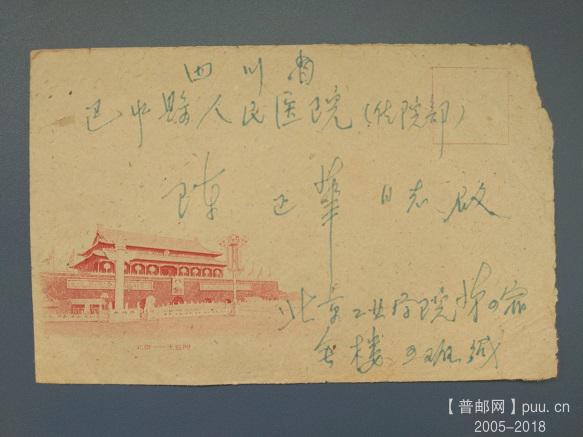 四川省
巴中縣人民医院(住院部)
陈正華同志啟
北京工业学院第9宿
舍楼9班缄
北京——天安门
【普邮网】puu.cn
2005-2018